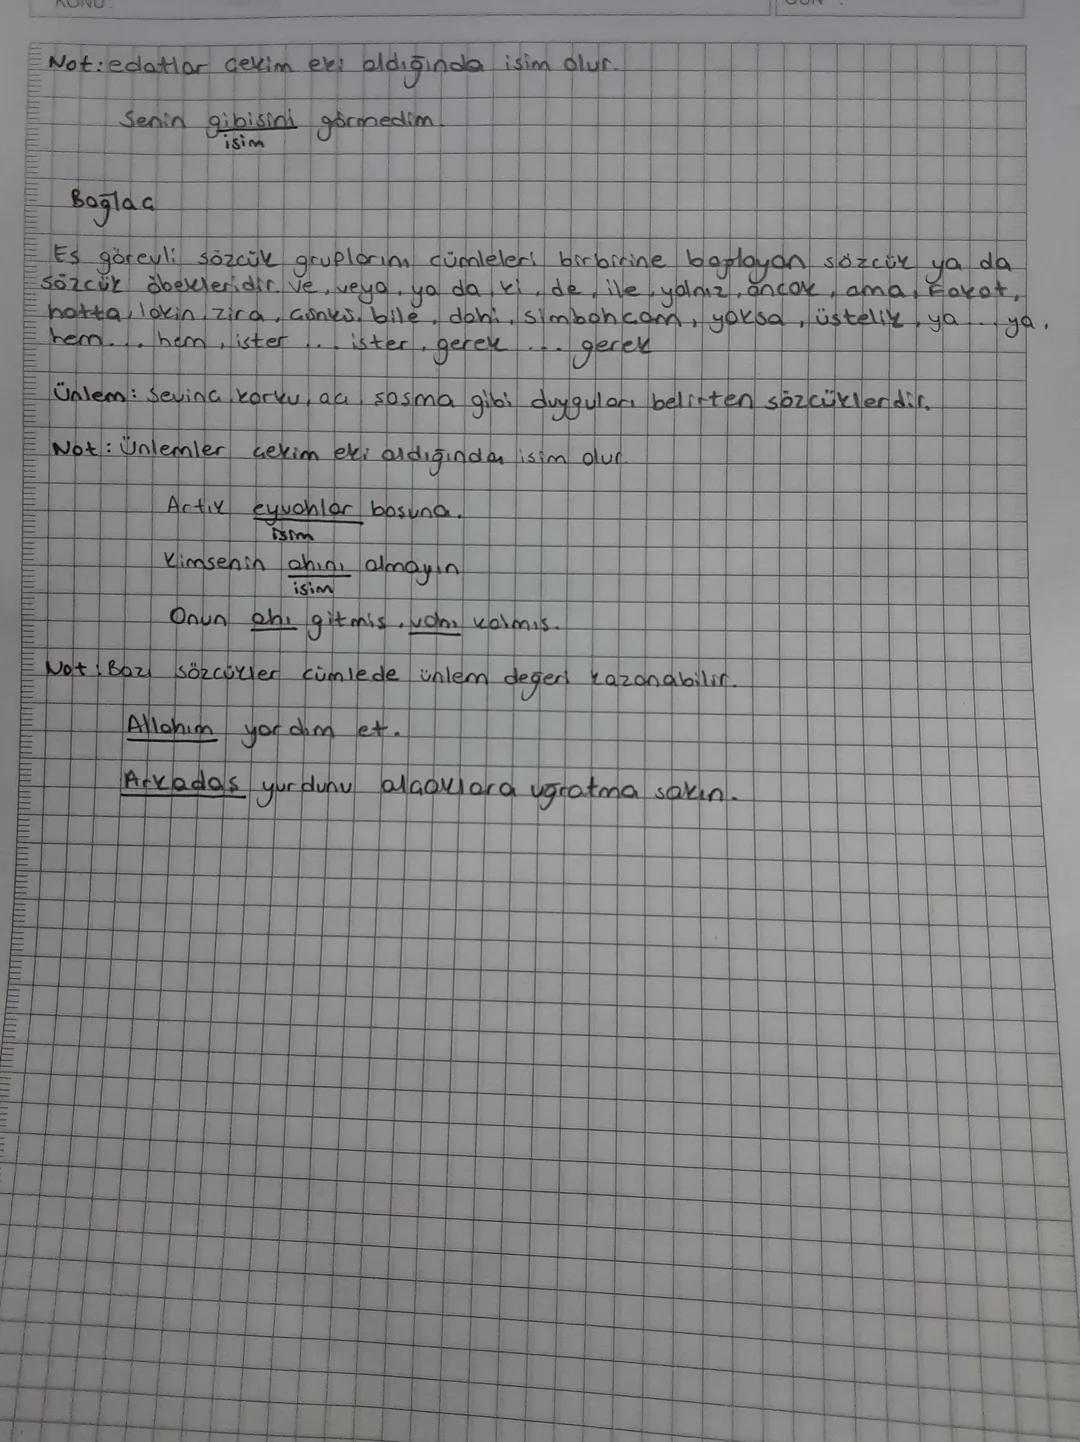 KONU:
GÜN :
Not: edatlar çekim eki aldığında isim olur.
Senin gibisini görmedim.
isim
Bağlaç
Eş görevli sözcük gruplarını cümleleri birbirine bağlayan sözcük ya da
sözcük öbekleridir. ve, veya, ya da, ki, de, ile, yalnız, ancak, ama, fakat,
hatta, lakin, zira, çünkü, bile, dahi, yoksa, üstelik, ya ... ya,
hem... hem, ister ... ister, gerek ... gerek
Ünlem: sevinç, korku, acı, sasma gibi duyguları belirten sözcüklerdir.
Not: Ünlemler çekim eki aldığında isim olur.
Artık eyvahlar bosuna.
isim
Kimsenin ahını almayın
isim
Onun ahı gitmis, vahı kalmıs.
Not: Bazı sözcükler cümlede ünlem değeri kazanabilir.
Allahım yardım et.
Arkadas yurdunu alçaklara uğratma sakın.